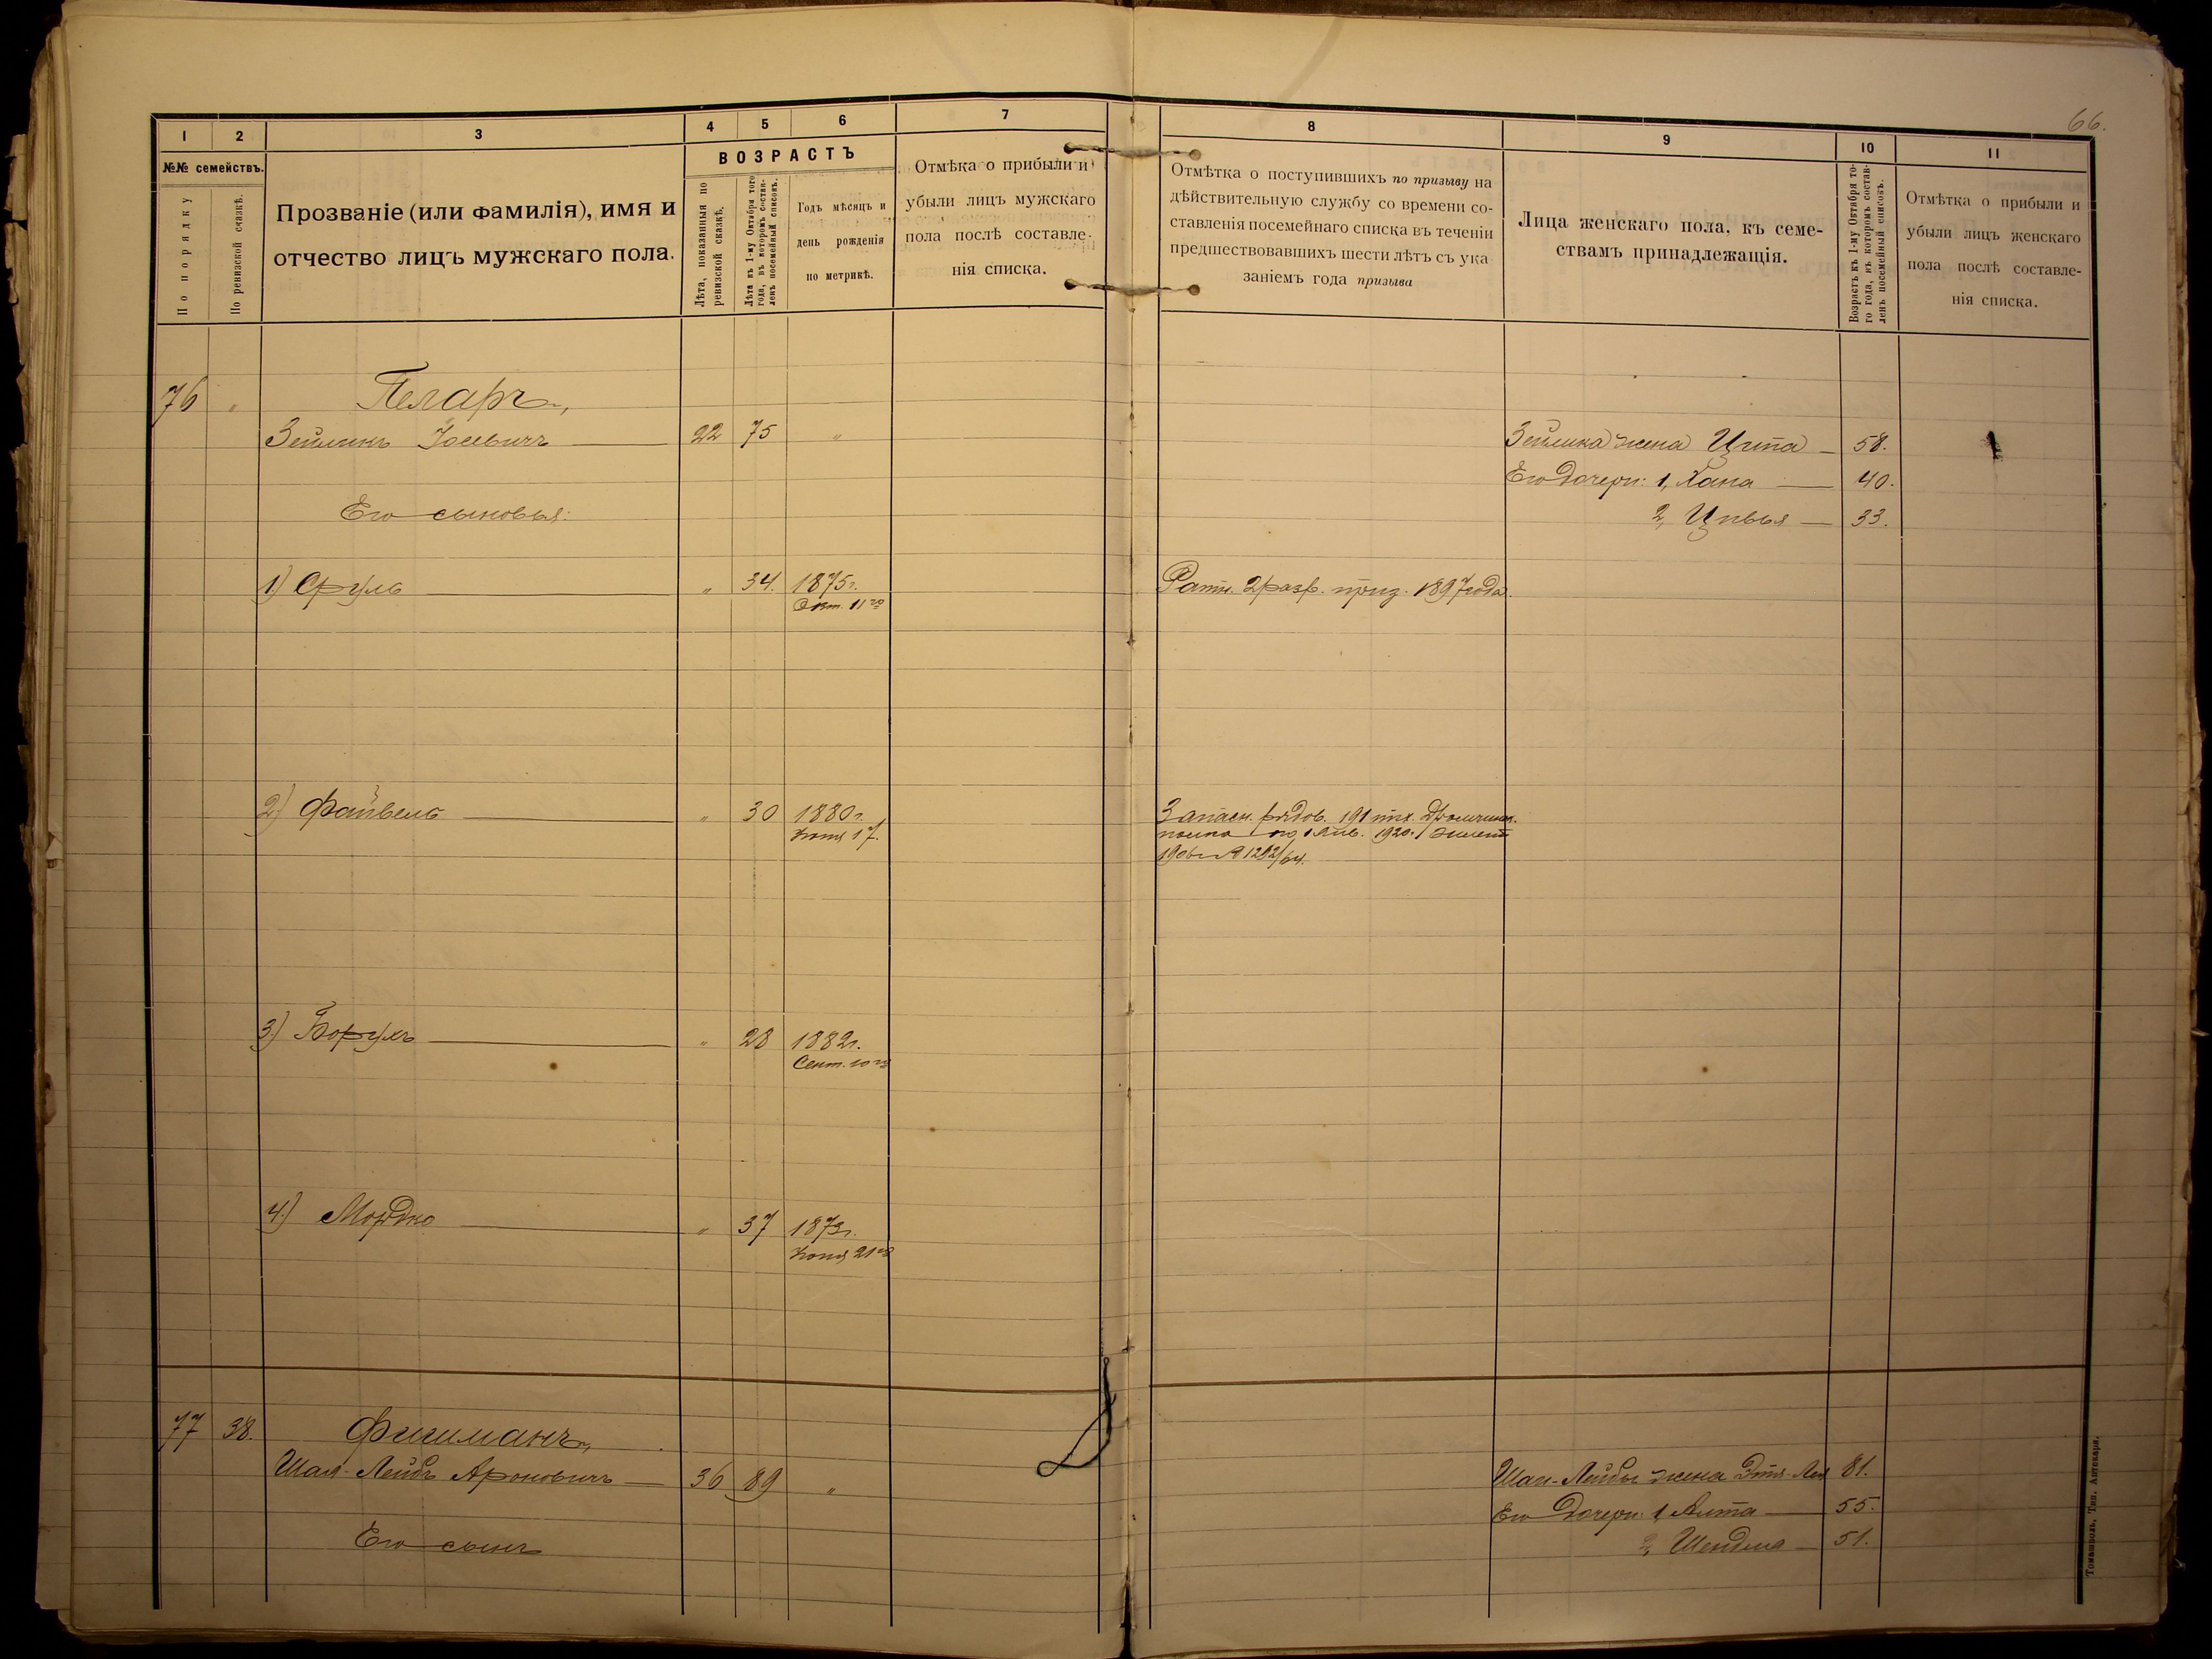 66.
1 2 3 4 5 6 7 8 9 10 11
№№ семействъ.
По порядку
По ревизской сказкѣ.
Прозваніе (или фамилія), имя и
отчество лицъ мужскаго пола.
ВОЗРАСТЪ
Лѣта, показанныя по
ревизской сказкѣ.
Лѣта къ 1-му Октября того
года, въ которомъ состав-
ленъ посемейный списокъ.
Годъ мѣсяцъ и
день рожденія
по метрикѣ.
Отмѣка о прибыли и
убыли лицъ мужскаго
пола послѣ составле-
нія списка.
Отмѣтка о поступившихъ по призыву на
дѣйствительную службу со времени со-
ставленія посемейнаго списка въ теченіи
предшествовавшихъ шести лѣтъ съ ука
заніемъ года призыва
Лица женскаго пола, къ семе-
ствамъ принадлежащія.
Возрастъ къ 1-му Октября то-
го года, въ которомъ состав-
ленъ посемейный списокъ.
Отмѣтка о прибыли и
убыли лицъ женскаго
пола послѣ составле-
нія списка.
76 " Пеларъ,
Зейликъ Іосевичъ 22 75 "
Зейлика жена Ципа 58.
Его дочери: 1, Хана 40.
2, Цивья 33.
Его сыновья:
1) Сруль " 34. 1875г.
Окт. 11го
Ратн. 2 разр. приз. 1897 года.
2) Файвель " 30 1880г.
Іюня 17.
Запасн. рядов. 191 пх.
полка по 1 Янв. 1920.
1906 г. № 1292/64.
3) Борухъ " 28 1882г.
Сент. 10го
4) Мордко " 37 1873г.
Іюня 21го
77 38. Фишманъ,
Шая-Лейбъ Ароновичъ 36 89 "
Шаи-Лейбы жена Этя-Лея 81.
Его дочери: 1, Алта 55.
2, Шендля 51.
Его сынъ
Томашполь, Тип. Аптекаря.